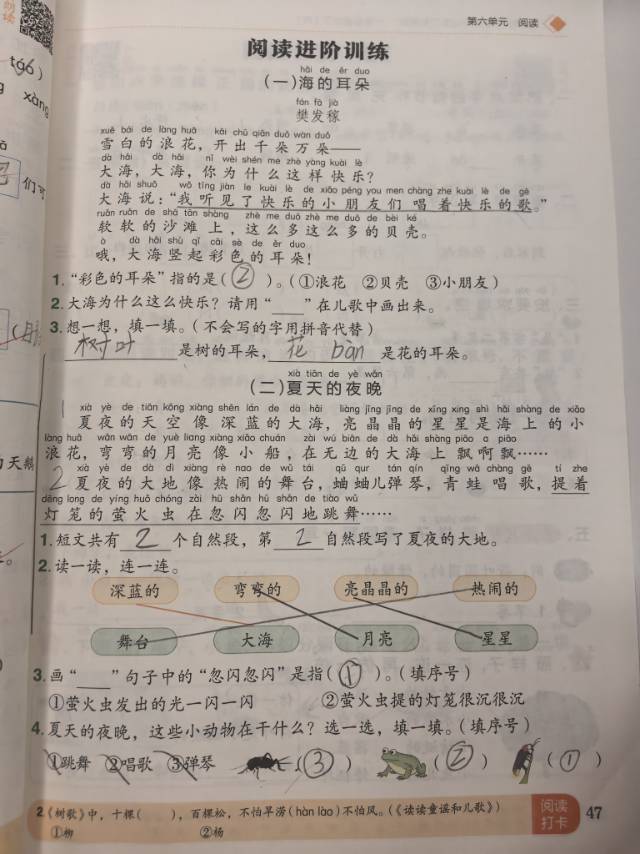 第六单元 阅读
阅读进阶训练
hǎi de ěr duo
(一)海的耳朵
fán fā jià
樊发稼
xuě bái de làng huā kāi chū qiān duǒ wàn duǒ
雪白的浪花，开出千朵万朵——
dà hǎi dà hǎi nǐ wèi shén me zhè yàng kuài lè
大海，大海，你为什么这样快乐？
dà hǎi shuō wǒ tīng jiàn le kuài lè de xiǎo péng you men chàng zhe kuài lè de gē
大海说：“我听见了快乐的小朋友们唱着快乐的歌。”
ruǎn ruǎn de shā tān shàng zhè me duō zhè me duō de bèi ké
软软的沙滩上，这么多这么多的贝壳。
ò dà hǎi shù qǐ cǎi sè de ěr duo
哦，大海竖起彩色的耳朵！
1.“彩色的耳朵”指的是(②)。(①浪花 ②贝壳 ③小朋友)
2.大海为什么这么快乐？请用“____”在儿歌中画出来。
3.想一想，填一填。(不会写的字用拼音代替)
树叶是树的耳朵，花 bàn是花的耳朵。
xià tiān de yè wǎn
(二)夏天的夜晚
xià yè de tiān kōng xiàng shēn lán de dà hǎi liàng jīng jīng de xīng xing shì hǎi shàng de xiǎo
1 夏夜的天空像深蓝的大海，亮晶晶的星星是海上的小
làng huā wān wān de yuè liang xiàng xiǎo chuán zài wú biān de dà hǎi shàng piāo a piāo
浪花，弯弯的月亮像小船，在无边的大海上飘啊飘……
xià yè de dà dì xiàng rè nao de wǔ tái qū qur tán qín qīng wā chàng gē tí zhe
2 夏夜的大地像热闹的舞台，蛐蛐儿弹琴，青蛙唱歌，提着
dēng long de yíng huǒ chóng zài hū shǎn hū shǎn de tiào wǔ
灯笼的萤火虫在忽闪忽闪地跳舞……
1.短文共有2个自然段，第2自然段写了夏夜的大地。
2.读一读，连一连。
深蓝的 弯弯的 亮晶晶的 热闹的
舞台 大海 月亮 星星
3.画“____”句子中的“忽闪忽闪”是指(①)。(填序号)
①萤火虫发出的光一闪一闪 ②萤火虫提的灯笼很沉很沉
4.夏天的夜晚，这些小动物在干什么？选一选，填一填。(填序号)
①跳舞 ②唱歌 ③弹琴 (③) (②) (①)
2《树歌》中，十棵( )，百棵松，不怕旱涝(hàn lào)不怕风。(《读读童谣和儿歌》)
①柳 ②杨
阅读
打卡
47